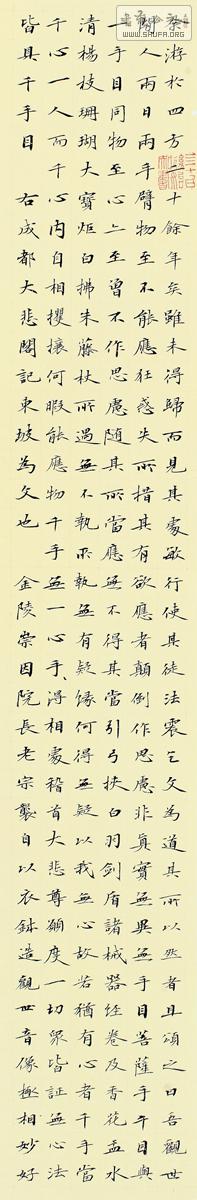 余游於四方二十餘年矣雖未得歸而見其處敏行使其徒法震乞文為道其所以然者且頌之曰吾觀世
間人兩目兩手臂物至不能應狂惑失所措其有欲應者顛倒作思慮非真實無異無手目菩薩千手目與
一手目同物至心亦至曾不作思慮隨其所當應無不得其當引弓挾白羽劍盾諸械器經卷及香花盂水
清楊枝珊瑚大寶炬白拂朱藤杖所遇無不執所執無有疑緣何得無疑以我無心故若猶有心者千手當
千心一人而千心內自相攫攘何暇能應物千手無一心手、得相處稽首大悲尊願度一切眾皆証無心法
皆具千手目 右成都大悲閣記東坡為文也 金陵崇因院長老宗襲自以衣鉢造觀世音像極相妙好
WWW.SHUFA.ORG